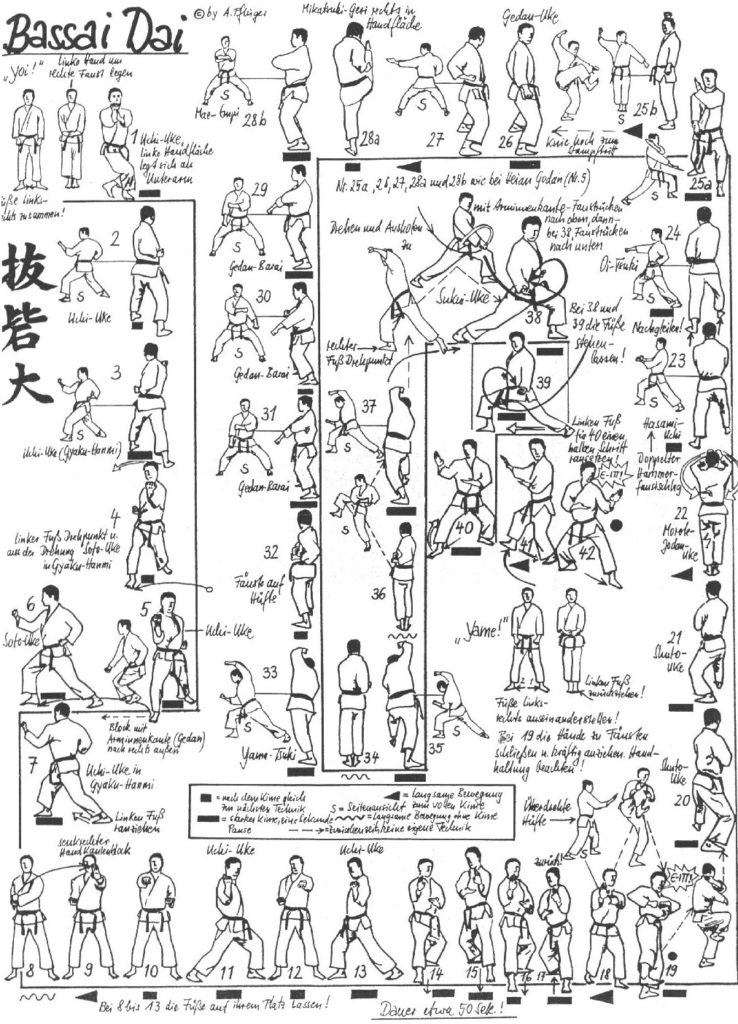 Bassai Dai
© by A. Pflüger
„Yoi!"
Linke Hand um
rechte Faust legen
1
Uchi-Uke,
linke Handfläche
legt sich an
Unterarm
Füße Links-
rechts zusammen!
拔
砦
大
2
S
Uchi-Uke
3
S
Uchi-Uke (Gyaku-Hanmi)
4
Linker Fuß Drehpunkt u.
aus der Drehung Soto-Uke
in Gyaku-Hanmi
6
Soto-Uke
5
Uchi-Uke
Block mit
Arminnenkante (Gedan)
nach rechts außen
7
Uchi-Uke in
Gyaku-Hanmi
Linken Fuß
ranziehen
senkrechter
Handkantenblock
8
9
10
Uchi-Uke
11
12
Uchi-Uke
13
Bei 8 bis 13 die Füße auf ihrem Platz lassen!
14
15
16
17
zurück!
18
19
E-ITT!
Dauer etwa 50 Sek.!
Überdrehte
Hüfte
S
Shuto-
Uke
20
21
Shuto-
Uke
22
Morote-
Jodan-
Uke
Hasami-
Uchi
Doppelter
Hammer-
faustschlag
23
S
Nachgleiten!
24
Oi-Tsuki
S
25a
S
25b
S
Knie hoch zum
Stampftritt
Gedan-Uke
26
27
S
Mikatsuki-Geri rechts in
Handfläche
28a
28b
Mae-Empi
S
Nr. 25a, 26, 27, 28a und 28b wie bei Heian Godan (Nr. 5)
29
S
Gedan-Barai
30
S
Gedan-Barai
31
S
Gedan-Barai
32
Fäuste auf
Hüfte
33
S
Yama-Tsuki
34
35
S
36
S
37
S
Drehen und Ausholen
zu
rechter
Fuß Drehpunkt
Sukui-Uke
mit Arminnenkante-Faustrücken
nach oben, dann
bei 38 Faustrücken
nach unten
38
Bei 38 und
39 die Füße
stehen-
lassen!
39
Linken Fuß
für 40 einen
halben Schritt
ransetzen!
40
41
42
E-ITT!
„Yame!"
2 1
Linken Fuß
zurückziehen!
Füße links-
rechts auseinanderstellen!
Bei 19 die Hände zu Fäusten
schließen u. kräftig anziehen. Hand-
haltung beachten!
= nach dem Kime gleich
zur nächsten Technik
= starkes Kime, eine Sekunde
Pause
= langsame Bewegung
zum vollen Kime
S = Seitenansicht
= langsame Bewegung ohne Kime
= Zwischenschritt/keine eigene Technik